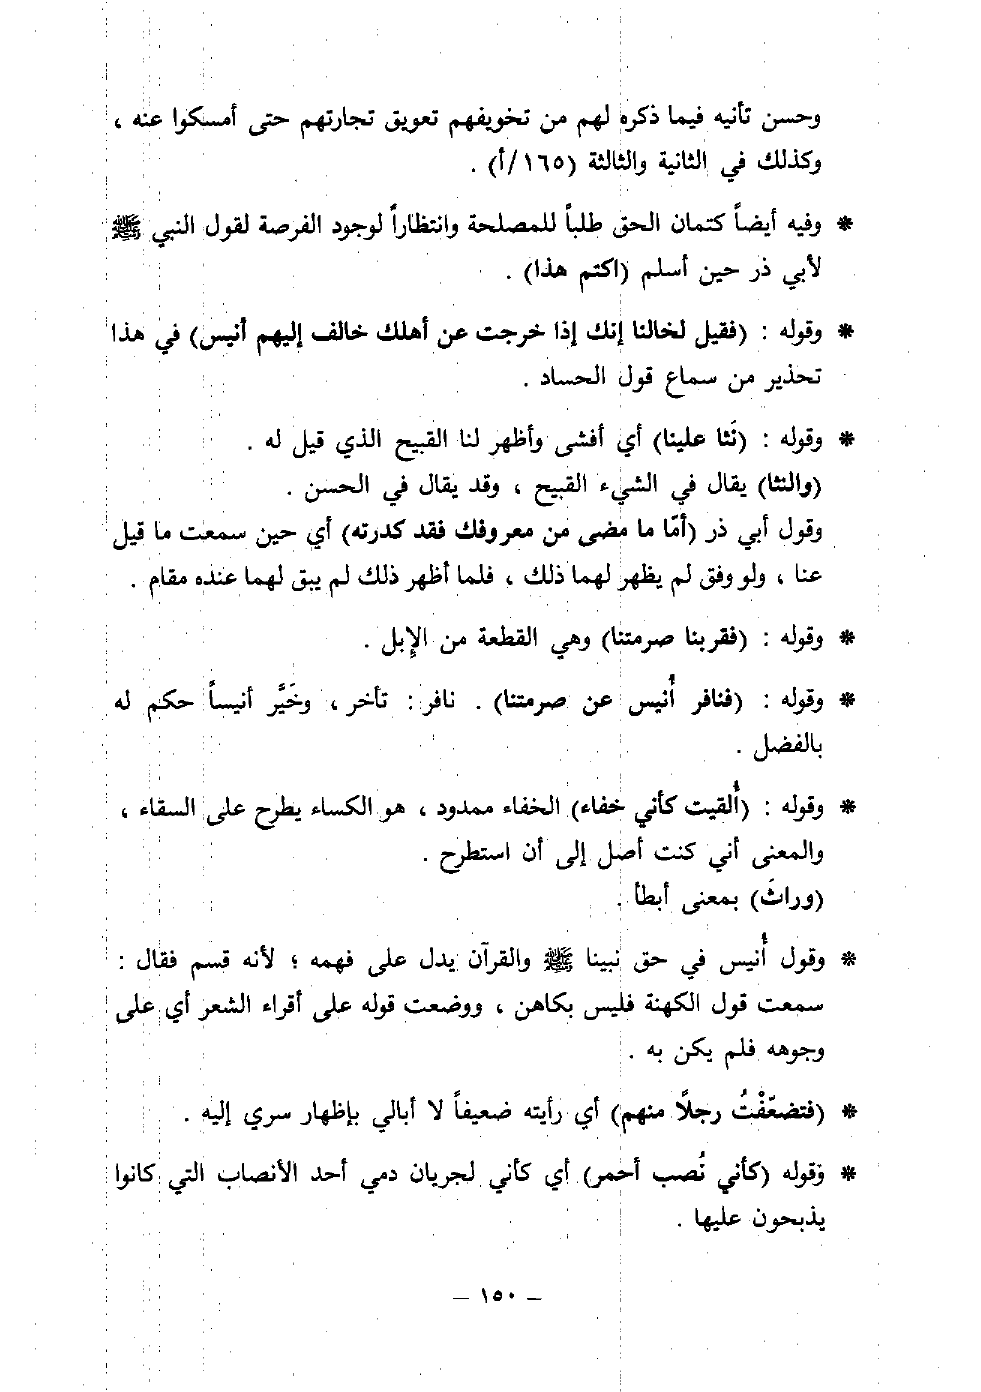 وحسن تأنيه فيما ذكره لهم من تخويفهم تعويق تجارتهم حتى أمسكوا عنه ،
وكذلك في الثانية والثالثة (١٦٥/أ) .
* وفيه أيضاً كتمان الحق طلباً للمصلحة وانتظاراً لوجود الفرصة لقول النبي ﷺ
لأبي ذر حين أسلم (اكتم هذا) .
* وقوله : (فقيل لخالنا إنك إذا خرجت عن أهلك خالف إليهم أنيس) في هذا
تحذير من سماع قول الحساد .
* وقوله : (نَثا علينا) أي أفشى وأظهر لنا القبيح الذي قيل له .
(والنثا) يقال في الشيء القبيح ، وقد يقال في الحسن .
وقول أبي ذر (أمّا ما مضى من معروفك فقد كدرته) أي حين سمعت ما قيل
عنا ، ولو وفق لم يظهر لهما ذلك ، فلما أظهر ذلك لم يبق لهما عنده مقام .
* وقوله : (فقربنا صرمتنا) وهي القطعة من الإبل .
* وقوله : (فنافر أُنيس عن صرمتنا) . نافر : تأخر ، وخَيَّر أنيساً حكم له
بالفضل .
* وقوله : (أُلقيت كأني خفاء) الخفاء ممدود ، هو الكساء يطرح على السقاء ،
والمعنى أني كنت أصل إلى أن استطرح .
(وراثَ) بمعنى أبطأ .
* وقول أُنيس في حق نبينا ﷺ والقرآن يدل على فهمه ؛ لأنه قسم فقال :
سمعت قول الكهنة فليس بكاهن ، ووضعت قوله على أقراء الشعر أي على
وجوهه فلم يكن به .
* (فتضعّفْتُ رجلًا منهم) أي رأيته ضعيفاً لا أبالي بإظهار سري إليه .
* وقوله (كأني نُصب أحمر) أي كأني لجريان دمي أحد الأنصاب التي كانوا
يذبحون عليها .
— ١٥٠ —